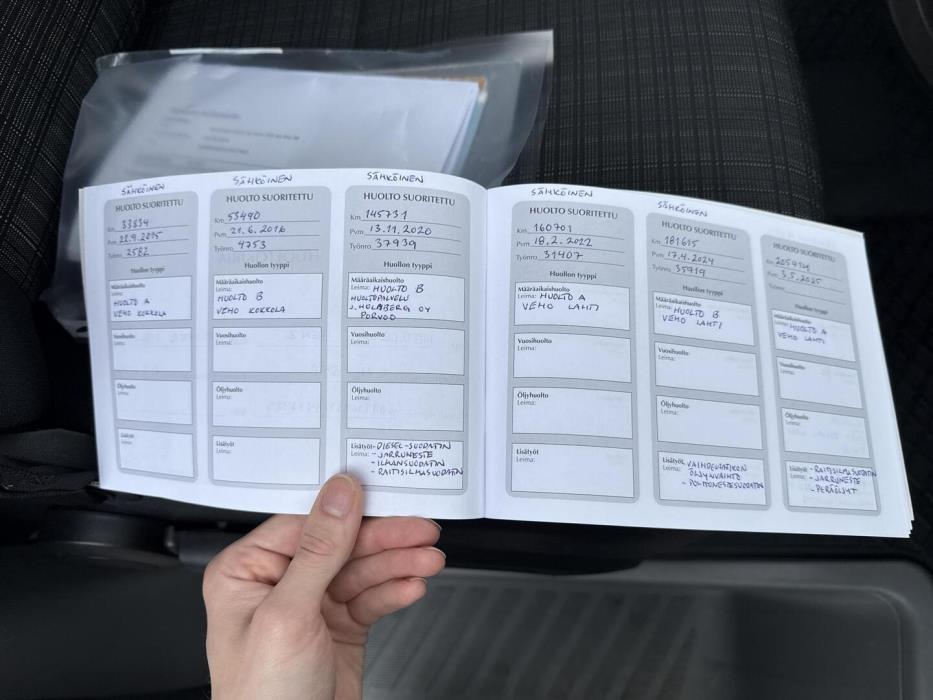 SÄHKÖINEN
HUOLTO SUORITETTU
Km 33834
Pvm 22.9.2015
Työnro 2582
Huollon tyyppi
Määräaikaishuolto
Leima:
HUOLTO A
VEHO KOKKOLA
Vuosihuolto
Leima:
Öljyhuolto
Leima:
Lisätyöt
Leima:
SÄHKÖINEN
HUOLTO SUORITETTU
Km 53490
Pvm 21.6.2016
Työnro 4753
Huollon tyyppi
Määräaikaishuolto
Leima:
HUOLTO B
VEHO KOKKOLA
Vuosihuolto
Leima:
Öljyhuolto
Leima:
Lisätyöt
Leima:
SÄHKÖINEN
HUOLTO SUORITETTU
Km 145731
Pvm 13.11.2020
Työnro 37939
Huollon tyyppi
Määräaikaishuolto
Leima: HUOLTO B
HUOLTOPALVELU
J. HOLMBERG OY
PORVOO
Vuosihuolto
Leima:
Öljyhuolto
Leima:
Lisätyöt - DIESEL-SUODATIN
Leima: - JARRUNESTE
- ILMANSUODATIN
- RAITISILMASUODATIN
SÄHKÖINEN
HUOLTO SUORITETTU
Km 160701
Pvm 18.2.2022
Työnro 31407
Huollon tyyppi
Määräaikaishuolto
Leima: HUOLTO A
VEHO LAHTI
Vuosihuolto
Leima:
Öljyhuolto
Leima:
Lisätyöt
Leima:
SÄHKÖINEN
HUOLTO SUORITETTU
Km 181615
Pvm 17.4.2024
Työnro 35719
Huollon tyyppi
Määräaikaishuolto
Leima: HUOLTO B
VEHO LAHTI
Vuosihuolto
Leima:
Öljyhuolto
Leima:
Lisätyöt VAIHDELAATIKON
Leima: ÖLJYNVAIHTO
- POLTTONESTESUODATIN
HUOLTO SUORITETTU
Km
Pvm 3.5.2025
Työnro
Huollon tyyppi
Määräaikaishuolto
Leima: HUOLTO A
VEHO LAHTI
Vuosihuolto
Leima:
Öljyhuolto
Leima:
Lisätyöt - RAITISILMASUODATIN
Leima: - JARRUNESTE
- PERÄÖLJYT